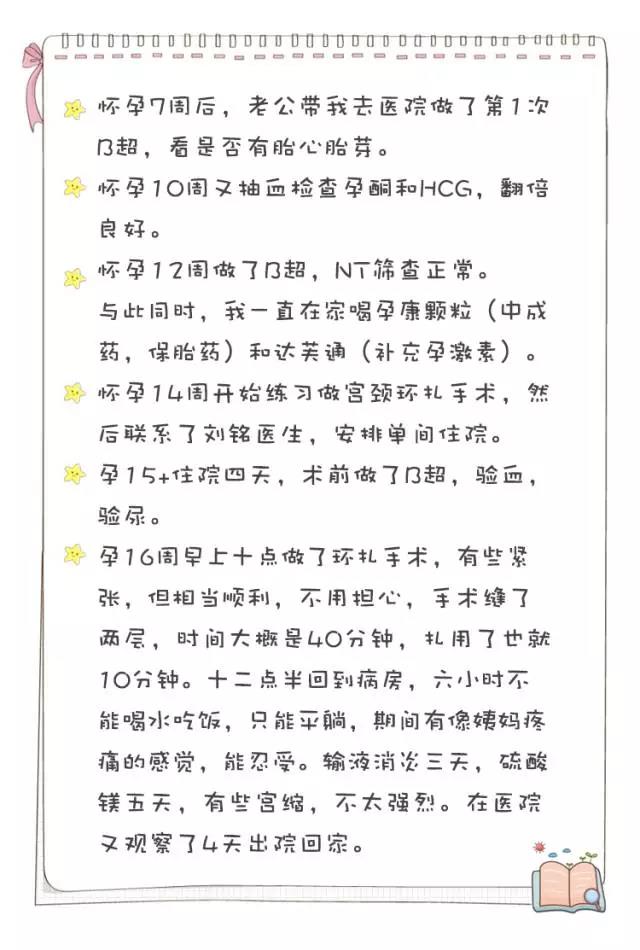 怀孕7周后，老公带我去医院做了第1次
B超，看是否有胎心胎芽。
怀孕10周又抽血检查孕酮和HCG，翻倍
良好。
怀孕12周做了B超，NT筛查正常。
与此同时，我一直在家喝孕康颗粒（中成
药，保胎药）和达芙通（补充孕激素）。
怀孕14周开始练习做宫颈环扎手术，然
后联系了刘铭医生，安排单间住院。
孕15+住院四天，术前做了B超，验血，
验尿。
孕16周早上十点做了环扎手术，有些紧
张，但相当顺利，不用担心，手术缝了
两层，时间大概是40分钟，扎用了也就
10分钟。十二点半回到病房，六小时不
能喝水吃饭，只能平躺，期间有像姨妈疼
痛的感觉，能忍受。输液消炎三天，硫酸
镁五天，有些宫缩，不太强烈。在医院
又观察了4天出院回家。